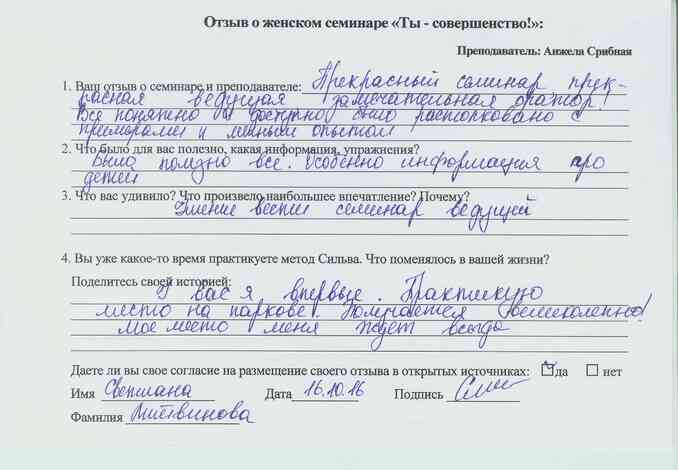 Отзыв о женском семинаре «Ты - совершенство!»:
Преподаватель: Анжела Срибная
1. Ваш отзыв о семинаре и преподавателе: Прекрасный семинар прек-
расная ведущая замечательная оратор!
Все понятно и доступно было растолковано с
примерами и личным опытом
2. Что было для вас полезно, какая информация, упражнения?
Было полезно все. Особенно информация про
детей
3. Что вас удивило? Что произвело наибольшее впечатление? Почему?
Умение вести семинар ведущей
4. Вы уже какое-то время практикуете метод Сильва. Что поменялось в вашей жизни?
Поделитесь своей историей:
У вас я впервые. Практикую
место на парковке. Получается великолепно!
Мое место меня ждет всегда
Даете ли вы свое согласие на размещение своего отзыва в открытых источниках: да нет
Имя Светлана Дата 16.10.16 Подпись
Фамилия Литвинова